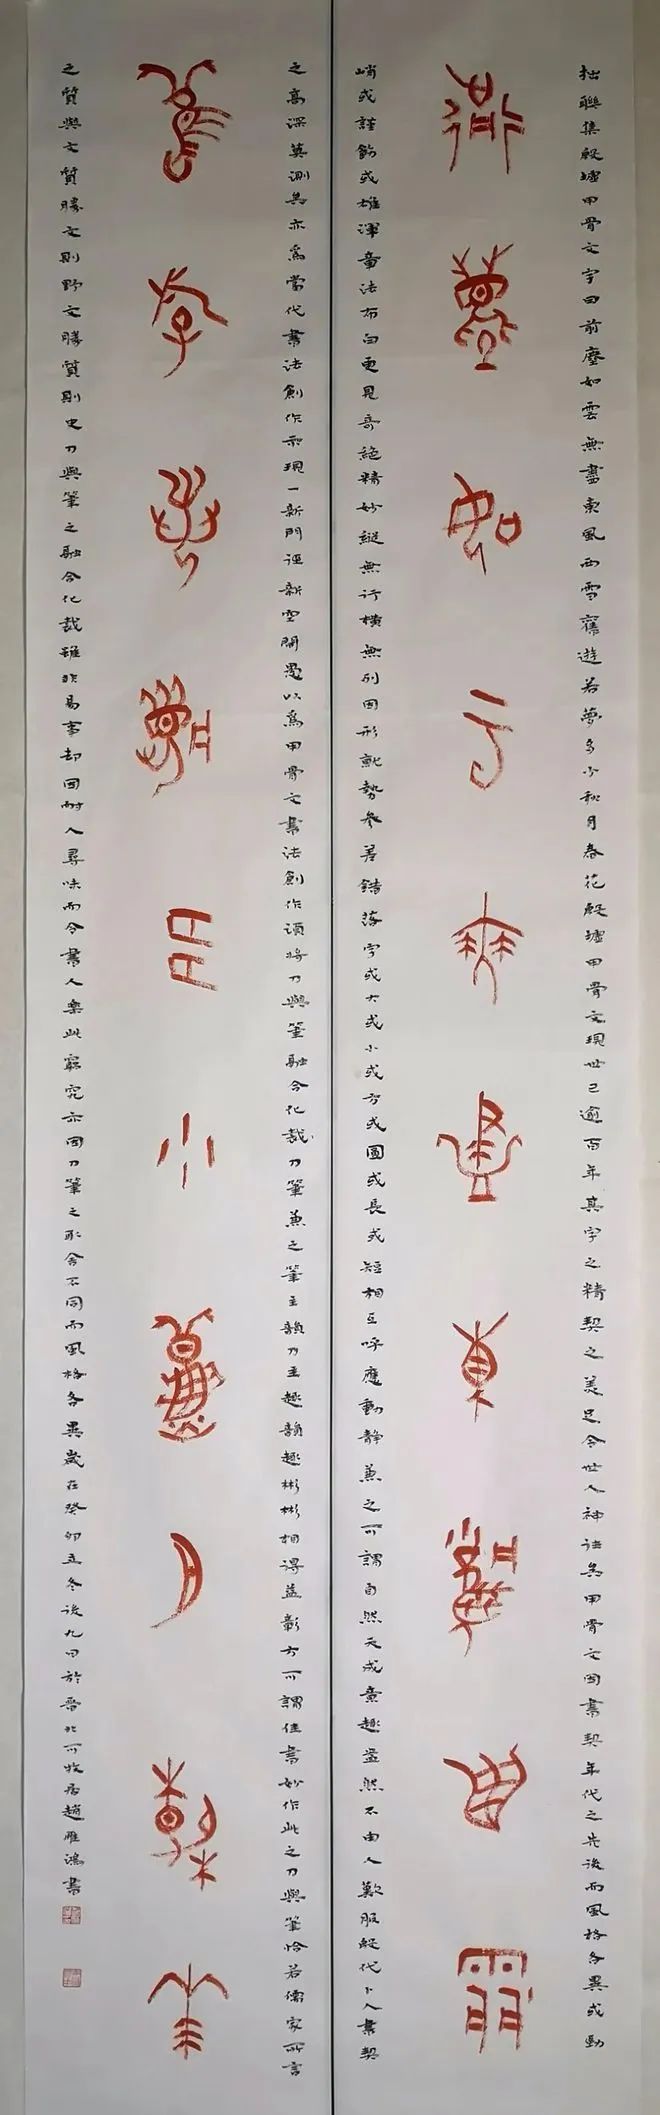 拙聯集殷墟甲骨文字曰前塵如雲無盡東風西雪舊遊若夢多少秋月春花殷墟甲骨文現世已逾百年其字之精契之美足令世人神往焉甲骨文因書契年代之先後而風格各異或勁
前塵如雲無盡東風西雪
峭或謹飭或雄渾章法布白更見奇絕精妙縱無行橫無列因形就勢參差錯落字或大或小或方或圓或長或短相互呼應動靜兼之可謂自然天成意趣盎然不由人歎服殷代卜人書契
之高深莫測焉亦爲當代書法創作示現一新門逕新空間愚以爲甲骨文書法創作須將刀與筆融合化裁刀筆兼之筆主韻刀主趣韻趣彬彬相得益彰方可謂佳書妙作此之刀與筆恰若儒家所言
舊遊若夢多少秋月春花
之質與文質勝文則野文勝質則史刀與筆之融合化裁雖非易事却因耐人尋味而令書人樂此窮究亦因刀筆之取舍不同而風格各異歲在癸卯立冬後九日於晉北可牧居趙雁鴻書